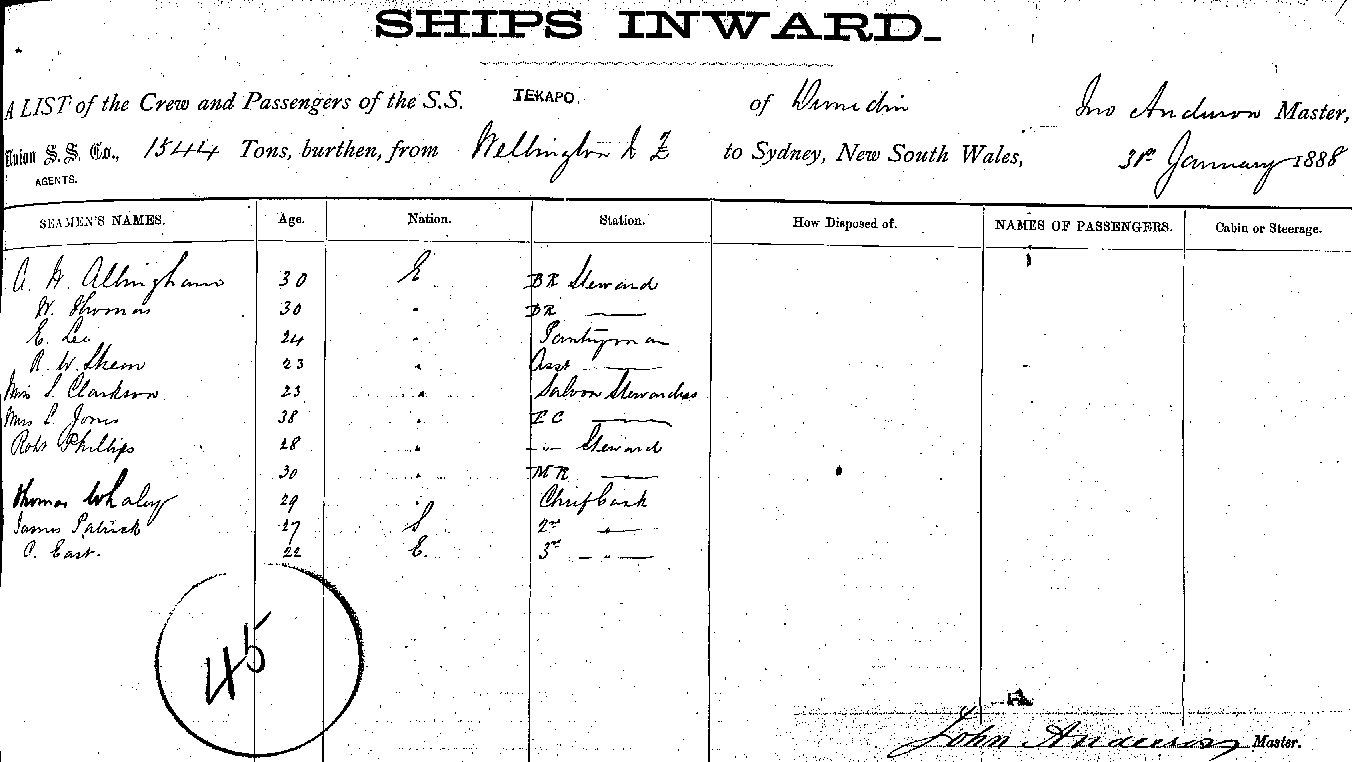 SHIPS INWARD.
A LIST of the Crew and Passengers of the S.S. TEKAPO. of Dunedin Jno Anderson Master,
Union S.S. Co., 1544 Tons, burthen, from Wellington N Z to Sydney, New South Wales, 31st January 1888
AGENTS.
SEAMEN'S NAMES. Age. Nation. Station. How Disposed of. NAMES OF PASSENGERS. Cabin or Steerage.
A. H. Allingham 30 E BR Steward
W. Thomas 30 " BR ——
E. Lee 24 " Pantryman
R. W. 23 " Asst ——
Miss S. Clarkson 23 " Saloon Stewardess
Mrs L. Jones 38 " FC ——
Robt Phillips 28 " -"- Steward
30 " MR ——
Thomas Whaley 29 " Chief Cook
James Patrick 27 S 2nd "
C. East. 22 E. 3rd — " —
45
John Anderson Master.